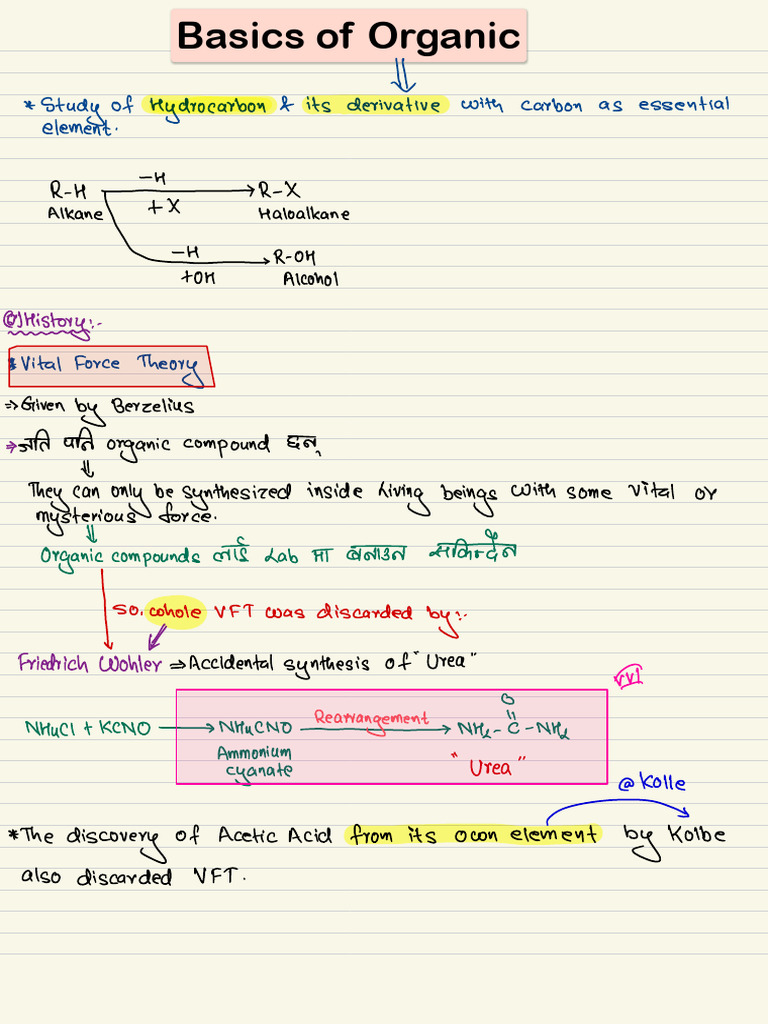 Basics of Organic
* Study of Hydrocarbon & its derivative with carbon as essential
element.
R-H —H R-X
Alkane +X Haloalkane
—H R-OH
+OH Alcohol
@) History:-
* Vital Force Theory
⇒ Given by Berzelius
⇒ जति पनि organic compound छन्,
⇓
They can only be synthesized inside living beings with some vital or
mysterious force.
⇓
Organic compounds लाई Lab मा बनाउन सकिन्दैन
so, whole VFT was discarded by:-
Friedrich Wohler ⇒ Accidental synthesis of "Urea"
vvI
NH4Cl + KCNO → NH4CNO Rearrangement → NH2-C-NH2
O
Ammonium
cyanate
"Urea"
@Kolle
* The discovery of Acetic Acid from its own element by Kolbe
also discarded VFT.